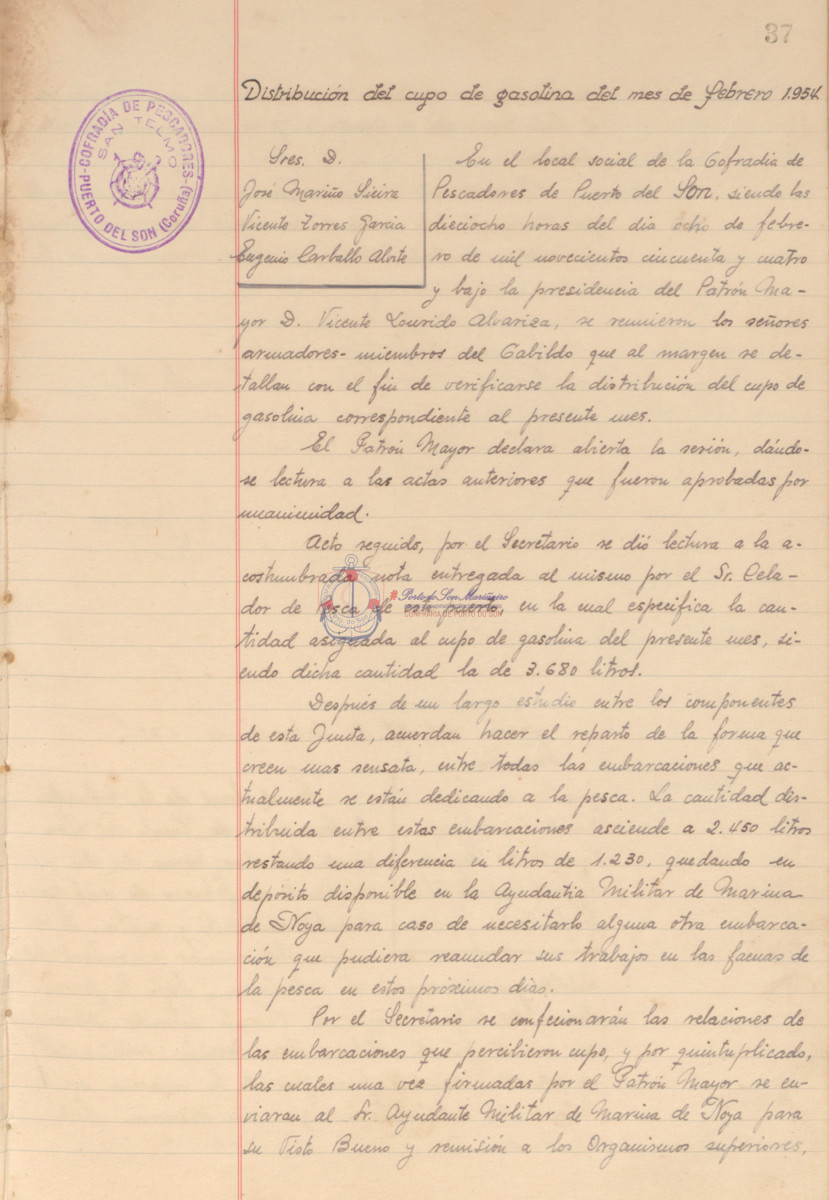 37
Distribución del cupo de gasolina del mes de febrero 1.954.
COFRADIA DE PESCADORES
SAN TELMO
PUERTO DEL SON (Coruña)
Sres. D.
José Mariño Sieira
Vicente Torres Garcia
Eugenio Carballo
En el local social de la Cofradia de
Pescadores de Puerto del Son, siendo las
dieciocho horas del dia ocho de febre-
ro de mil novecientos cincuenta y cuatro
y bajo la presidencia del Patrón Ma-
yor D. Vicente Lourido Alvariza, se reunieron los señores
armadores-miembros del Cabildo que al margen se de-
tallan con el fin de verificarse la distribución del cupo de
gasolina correspondiente al presente mes.
El Patrón Mayor declara abierta la sesión, dándo-
se lectura a las actas anteriores que fueron aprobadas por
unanimidad.
Acto seguido, por el Secretario se dió lectura a la a-
costumbrada nota entregada al mismo por el Sr. Cela-
dor de Pesca de este puerto, en la cual especifica la can-
tidad asignada al cupo de gasolina del presente mes, si-
endo dicha cantidad la de 3.680 litros.
#Porto do Son Mariñeiro
CONFRARÍA DE PORTO DO SON
Después de un largo estudio entre los componentes
de esta Junta, acuerdan hacer el reparto de la forma que
creen mas sensata, entre todas las embarcaciones que ac-
tualmente se están dedicando a la pesca. La cantidad dis-
tribuida entre estas embarcaciones asciende a 2.450 litros
restando una diferencia en litros de 1.230, quedando en
depósito disponible en la Ayudantia Militar de Marina
de Noya para caso de necesitarlo alguna otra embarca-
ción que pudiera reanudar sus trabajos en las faenas de
la pesca en estos próximos dias.
Por el Secretario se confeccionarán las relaciones de
las embarcaciones que percibieron cupo, y por quintuplicado,
las cuales una vez firmadas por el Patrón Mayor se en-
viaran al Sr. Ayudante Militar de Marina de Noya para
su Visto Bueno y remisión a los Organismos superiores,